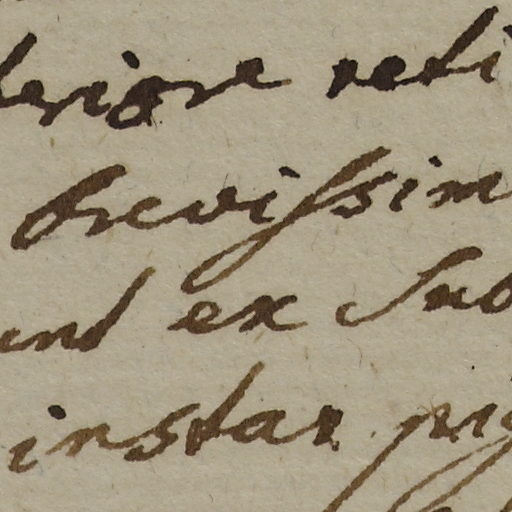 teriore reti
brevissim
unt ex Sub
instar pig